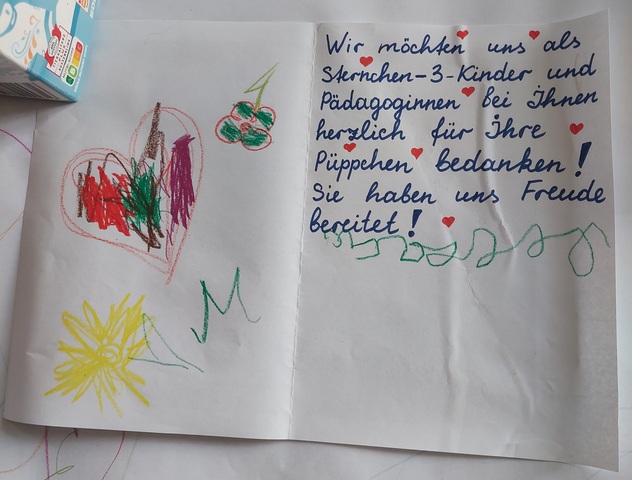 M
Wir möchten uns als
Sternchen-3-Kinder und
Pädagoginnen bei Ihnen
herzlich für Ihre
Püppchen bedanken!
Sie haben uns Freude
bereitet!